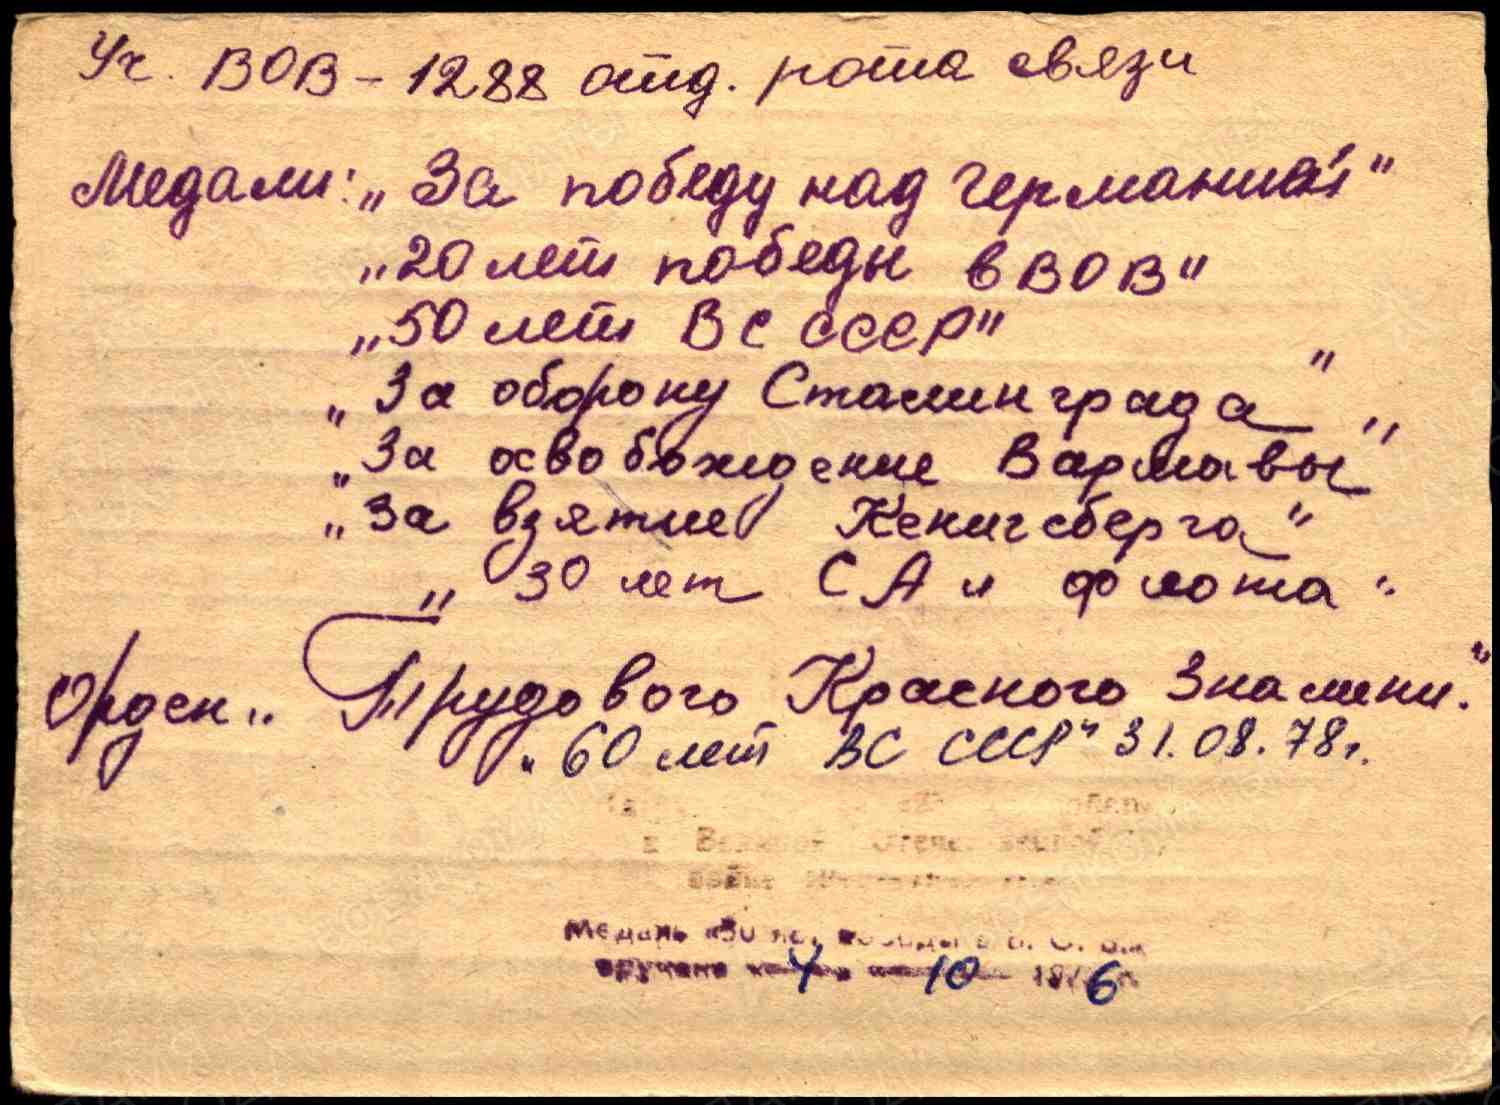 Уч. ВОВ – 1288 отд. рота связи
Медали: „За победу над Германией"
„20 лет победы в ВОВ"
„50 лет ВС СССР"
„За оборону Сталинграда"
„За освобождение Варшавы"
„За взятие Кенигсберга"
„30 лет СА и флота"
Орден „Трудового Красного Знамени."
„60 лет ВС СССР" 31.08.78г.
в
Медаль «30 лет победы в В. О. В.»
вручена « 4 » 10 1976 г.